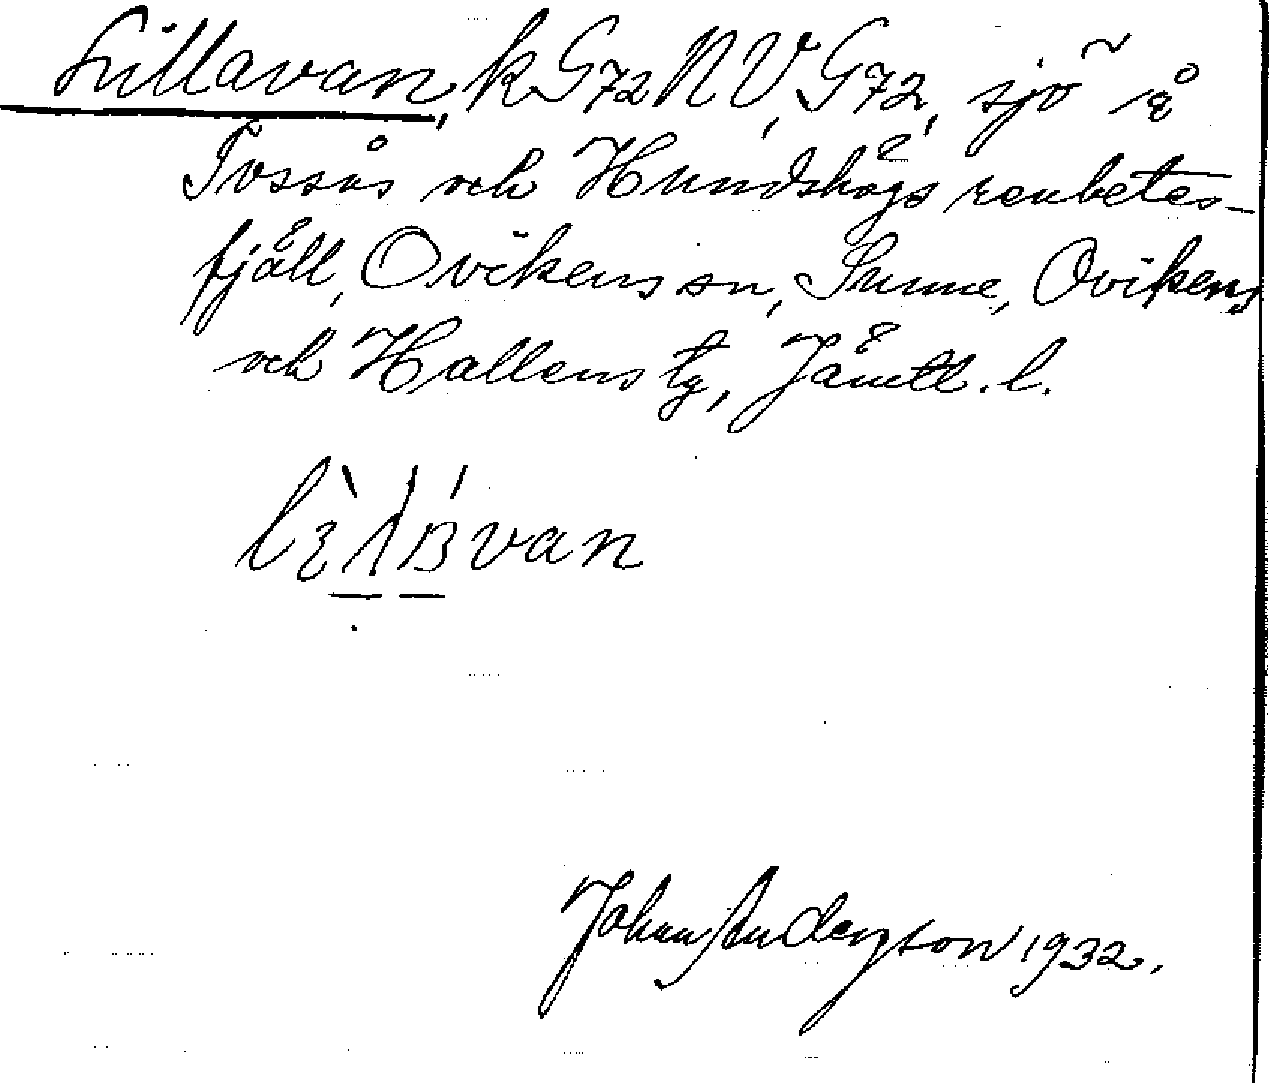 Lillavan, k G72 NV, G72, sjö å
Tossås och Hundshögs renbetes-
fjäll, Ovikens sn, Sunne, Ovikens
och Hallens tg, Jämtl. l.
Johan Anderson 1932.